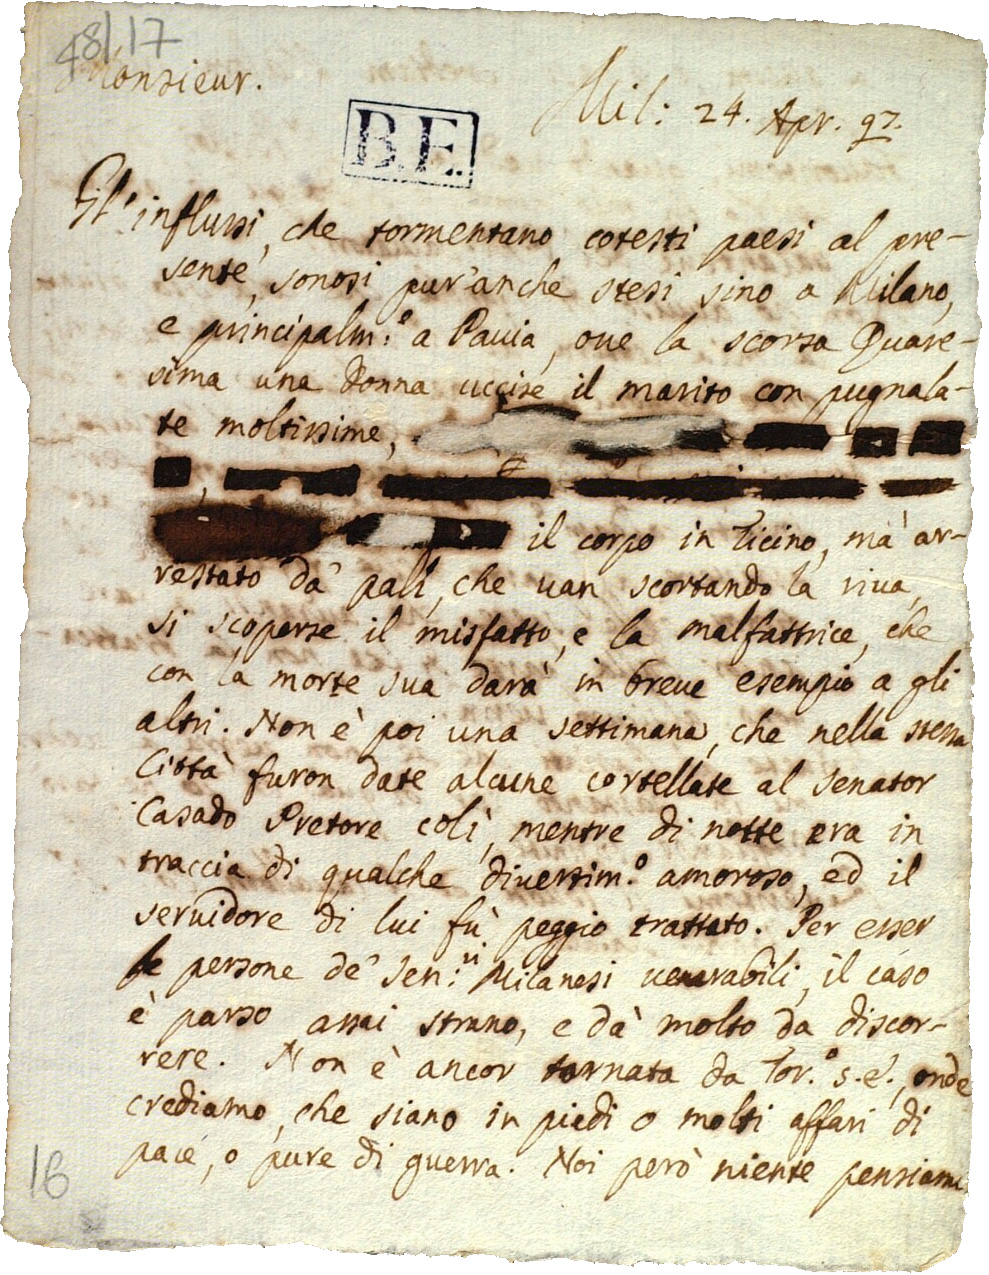 48/17
Monsieur.
B.E.
Mil: 24. Apr. 97.
Gl'influssi, che tormentano cotesti paesi al pre-
sente, sonosi pur'anche stesi sino a Milano,
e principalm:o a Pavia, ove la scorsa Quare-
sima una Donna uccise il marito con pugnala-
te moltissime,
il corpo in Ticino, mà ar-
restato da' pali, che van scortando la riva,
si scoperse il misfatto, e la malfattrice, che
con la morte sua darà in breve esempio a gli
altri. Non è poi una settimana, che nella stessa
Città furon date alcune cortellate al Senator
Casado Pretore colì, mentre di notte era in
traccia di qualche divertim:o amoroso, ed il
servidore di lui fù peggio trattato. Per esser
le persone de' Sen:ri Milanesi venerabili, il caso
è parso assai strano, e dà molto da discor-
rere. Non è ancor tornata da Tor.o S.E., onde
crediamo, che siano in piedi o molti affari di
pace, o pure di guerra. Noi però niente pensiamo
16